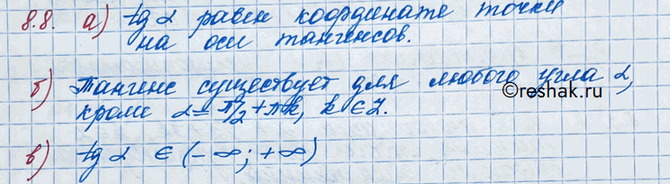 8.8. а) tg α равен координате точки
на оси тангенсов.
б) Тангенс существует для любого угла α,
кроме α = π/2 + πk, k ∈ Z.
©reshak.ru
в) tg α ∈ (-∞; +∞)